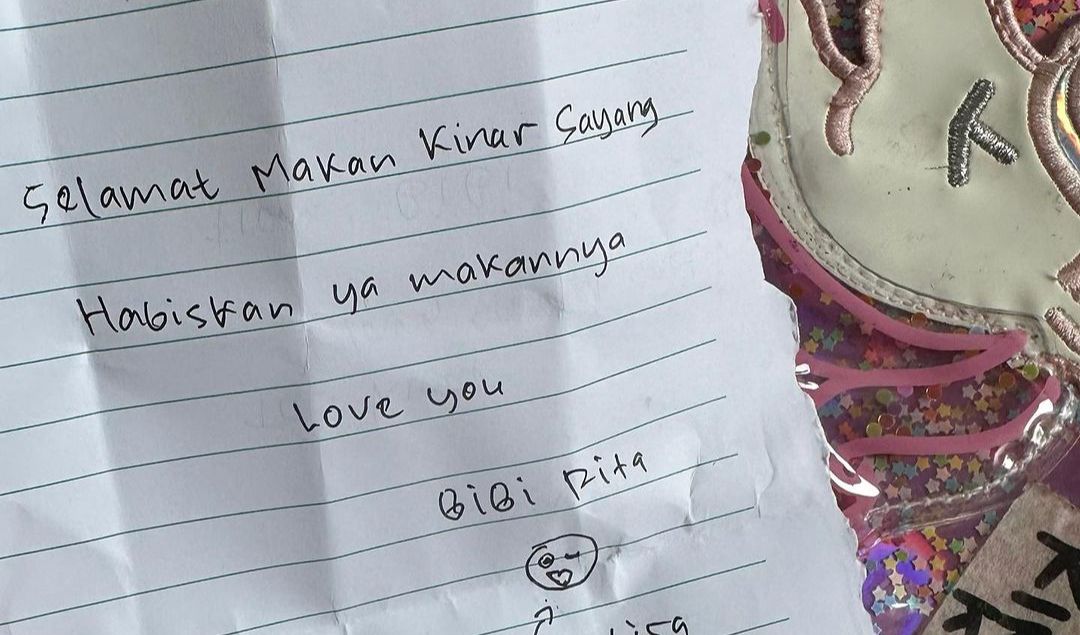 Selamat Makan Kinar Sayang
Habiskan ya makannya
Love you
BiBi Rita
K